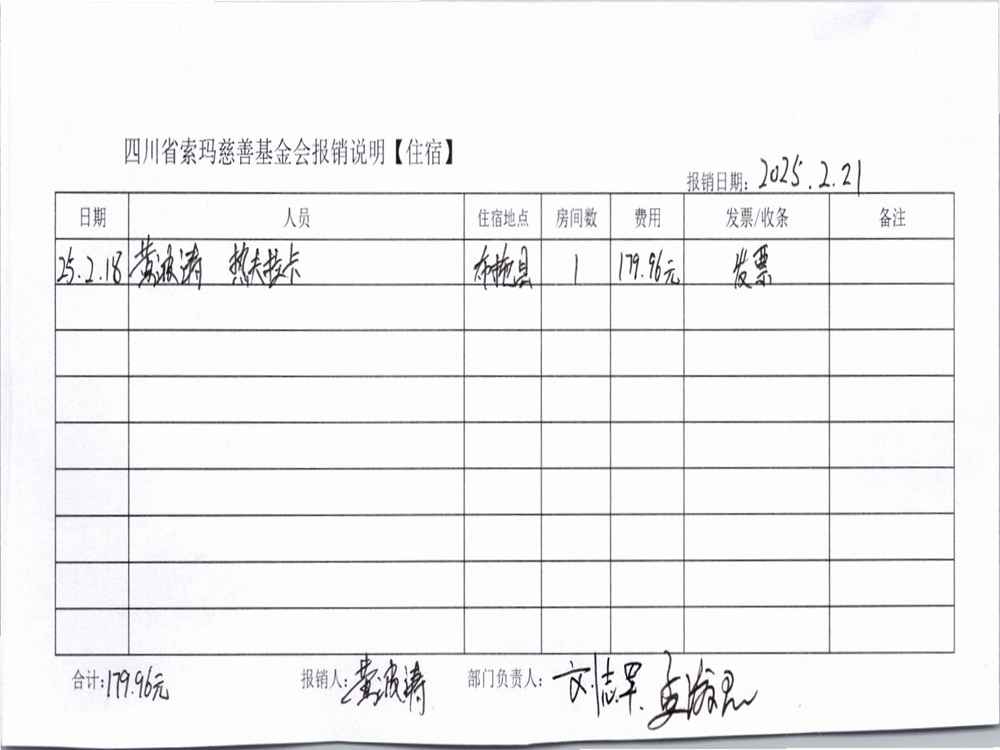 四川省索玛慈善基金会报销说明【住宿】
报销日期：2025.2.21
日期 人员 住宿地点 房间数 费用 发票/收条 备注
25.2.18 黄波涛 热夫拉卡 布拖县 1 179.96元 发票
合计：179.96元 报销人：黄波涛 部门负责人：刘志军